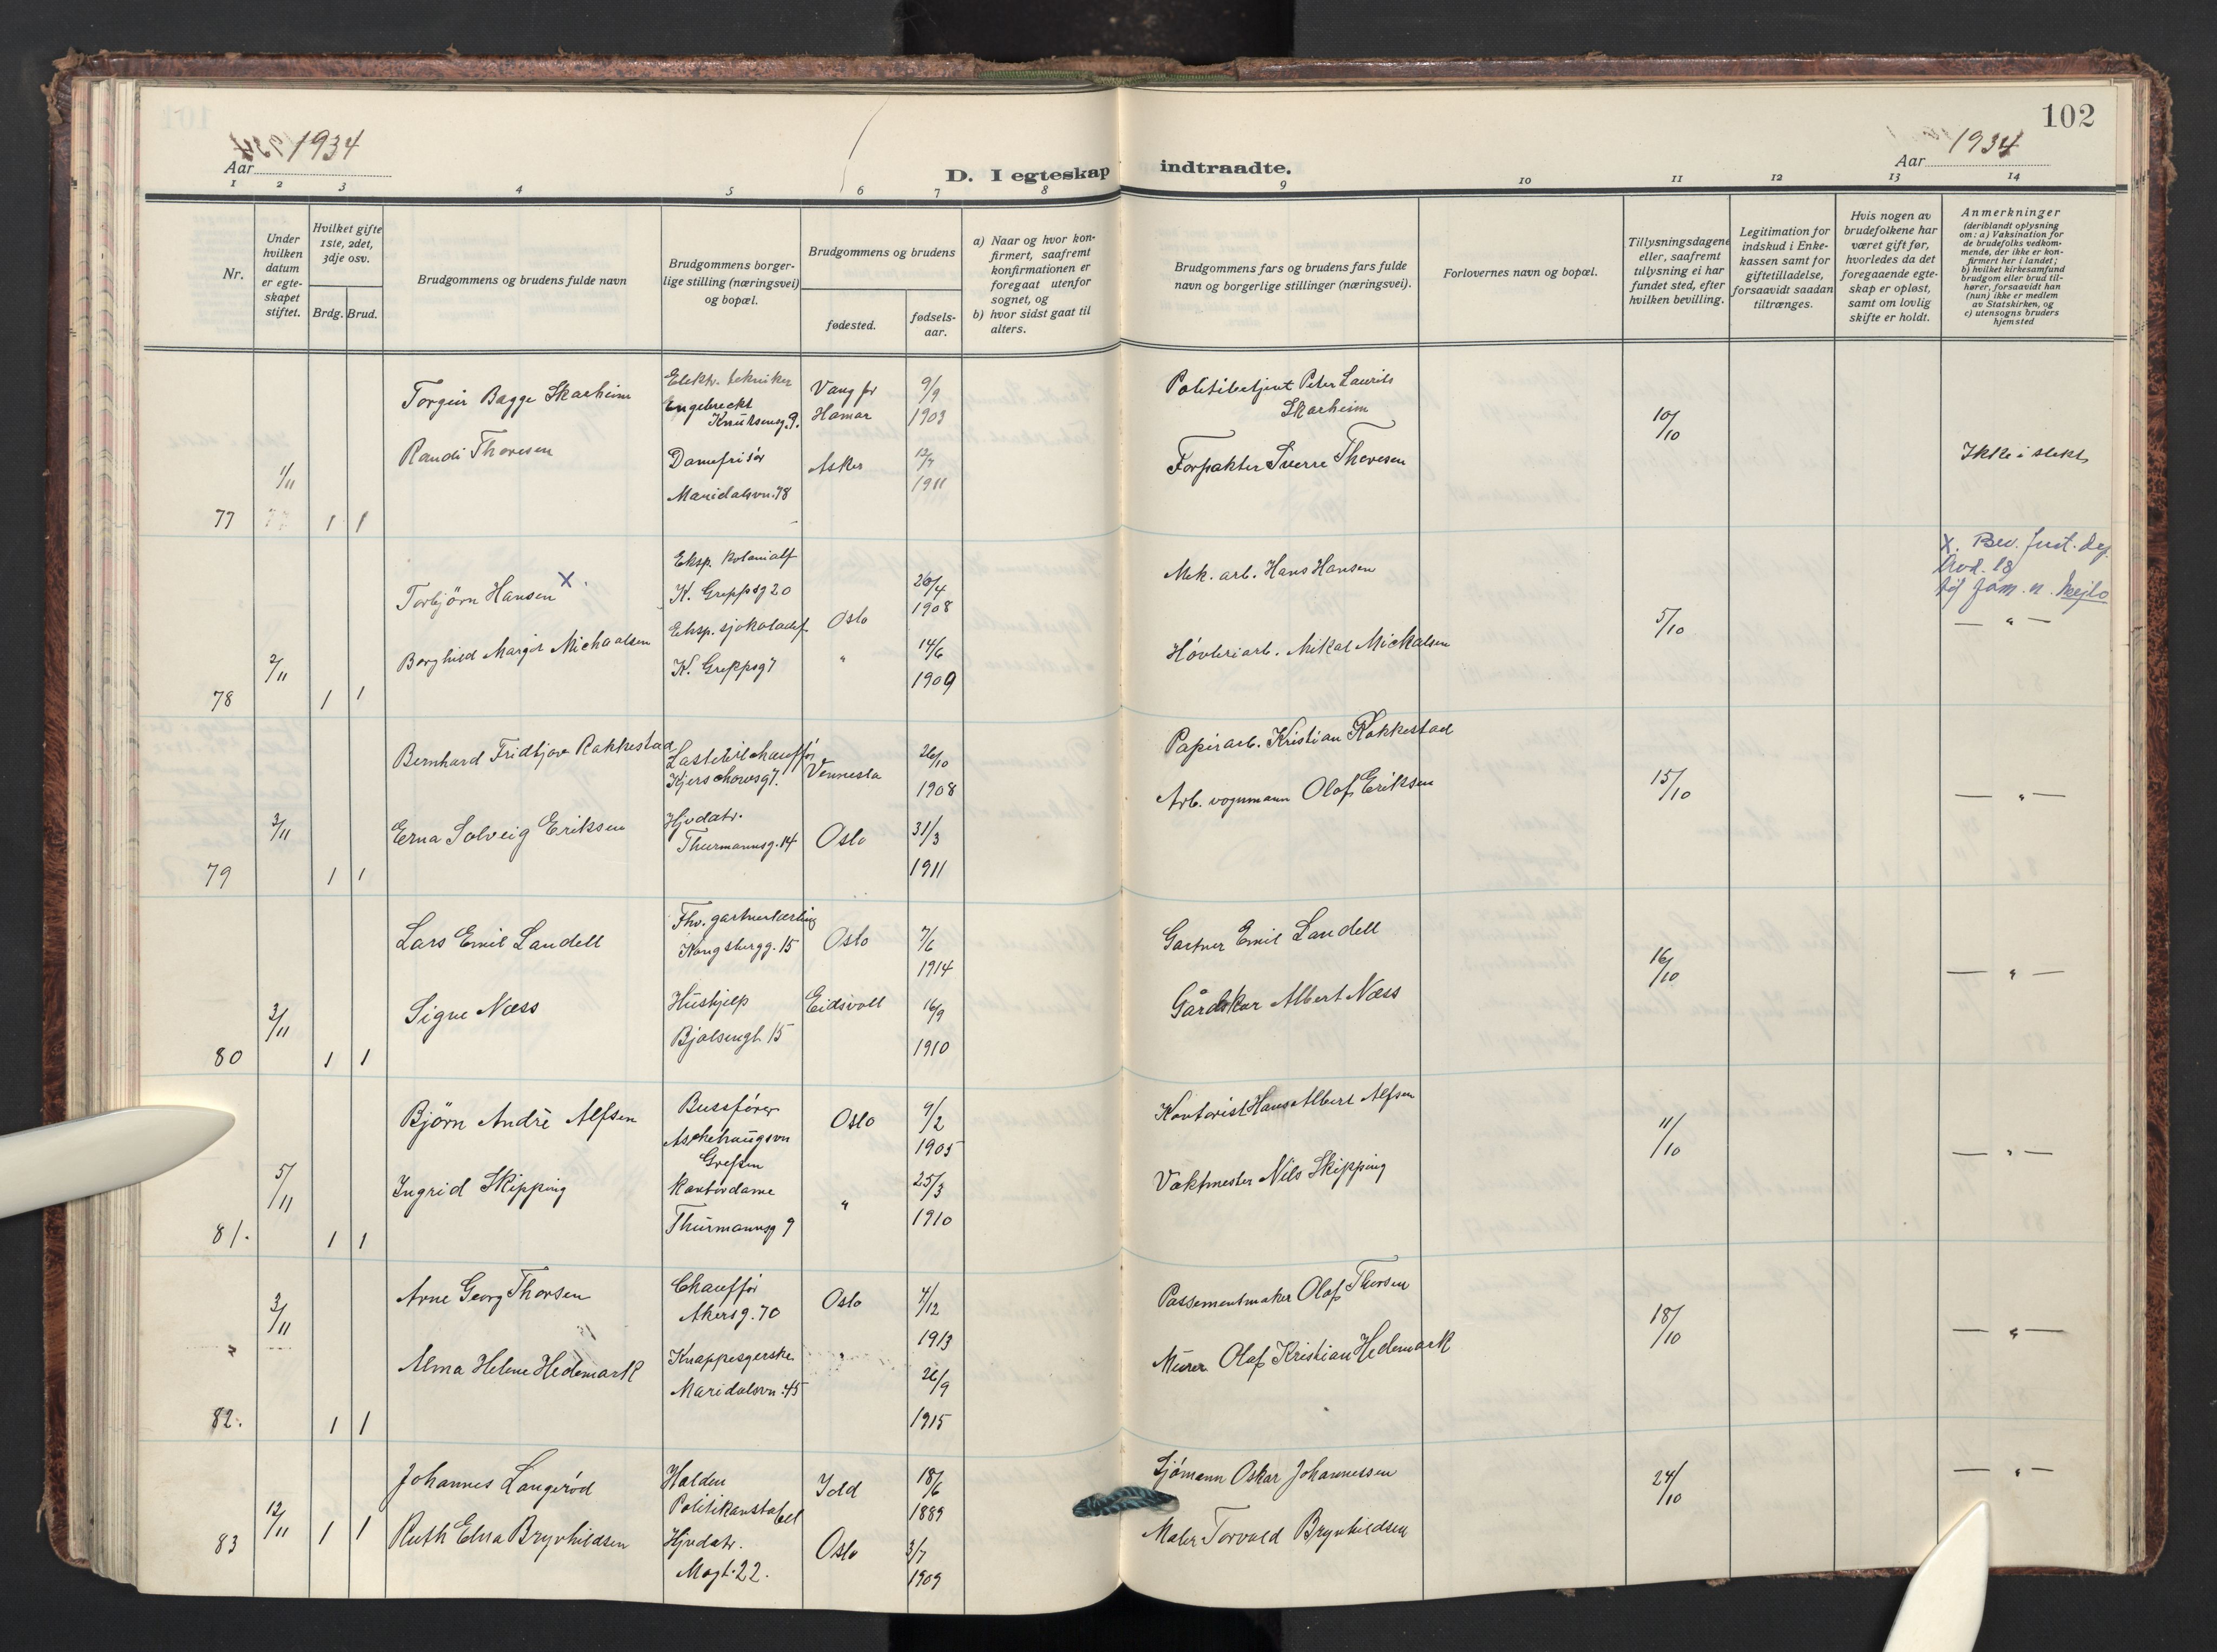 102
1934
Aar
1934
Aar
D. I egteskap indtraadte.
1 2 3 4 5 6 7 8 9 10 11 12 13 14
Nr.
Under hvilken datum er egteskapet stiftet.
Hvilket gifte 1ste, 2det, 3dje osv.
Brdg. Brud.
Brudgommens og brudens fulde navn
Brudgommens borgerlige stilling (næringsvei) og bopæl.
Brudgommens og brudens
fødested.
fødselsaar.
a) Naar og hvor konfirmert, saafremt konfirmationen er foregaat utenfor sognet, og
b) hvor sidst gaat til alters.
Brudgommens fars og brudens fars fulde navn og borgerlige stillinger (næringsvei).
Forlovernes navn og bopæl.
Tillysningsdagene eller, saafremt tillysning ei har fundet sted, efter hvilken bevilling.
Legitimation for indskud i Enkekassen samt for giftetilladelse, forsaavidt saadan tiltrænges.
Hvis nogen av brudefolkene har været gift før, hvorledes da det foregaaende egteskap er opløst, samt om lovlig skifte er holdt.
Anmerkninger
(deriblandt oplysning om: a) Vaksination for de brudefolks vedkommende, der ikke er konfirmert her i landet;
b) hvilket kirkesamfund brudgom eller brud tilhører, forsaavidt han (hun) ikke er medlem av Statskirken, og
c) utensogns bruders hjemsted
77
1/11
1 1
Torgeir Bagge Skarheim
Elektr. tekniker
Engebreckt
Knutsensg. 9.
Vang pr
Hamar
9/9
1903
Politibetjent Peter Laurits
Skarheim
10/10
Randi Thoresen
Damefrisör
Maridalsvn. 78
Asker
12/7
1911
Forpakter Sverre Thoresen
Ikke i slekt
78
2/11
1 1
Torbjörn Hansen X
Eksp. kolonialf
K. Greppsg 20
Oslo
20/4
1908
Mek. arb. Hans Hansen
5/10
X. Bev. Just. dep.
Borghild Margit Michaalsen
Eksp. sjokoladef
K. Greppsg 7
"
14/6
1909
Høvleriarb. Mikal Mickalsen
— " —
79
3/11
1 1
Bernhard Fridtjov Rakkestad
Lastebilchauffør
Kjerschowsg 7.
Vennesla
26/10
1908
Papirarb. Kristian Rakkestad
15/10
Erna Solveig Eriksen
Hjvdatr.
Thurmannsg. 14
Oslo
31/3
1911
Arb. vognmann Olaf Eriksen
— " —
80
3/11
1 1
Lars Emil Landell
Fhv. gartnerlærling
Kongsbergg. 15
Oslo
7/6
1914
Gartner Emil Landell
16/10
Signe Næss
Hushjelp
Bjølsengt. 15
Eidsvoll
16/9
1910
Albert Næss
— " —
81.
5/11
1 1
Björn Andrè Alfsen
Bussfører
Aschehaugsvn
Grefsen
Oslo
9/2
1905
Kontorist Hans Albert Alfsen
11/10
Ingrid Skipping
Kontordame
Thurmannsg 9
"
25/3
1910
Vaktmester Nils Skipping
— " —
82.
3/11
1 1
Arne Georg Thorsen
Chauffør
Akersg. 70
Oslo
4/12
1913
Passementmaker Olaf Thorsen
18/10
Alma Helene Hedemark
Knappesyerske
Maridalsvn. 45
"
26/9
1915
Murer Olaf Kristian Hedemark
— " —
83
12/11
1 1
Johannes Langerød
Halden
Politikonstabel
Idd
18/6
1889
Sjømann Oskar Johannessen
24/10
Ruth Elna Brynhildsen
Hjvdatr.
Mogt. 22.
Oslo
3/7
1909
Maler Torvald Brynhildsen
— " —